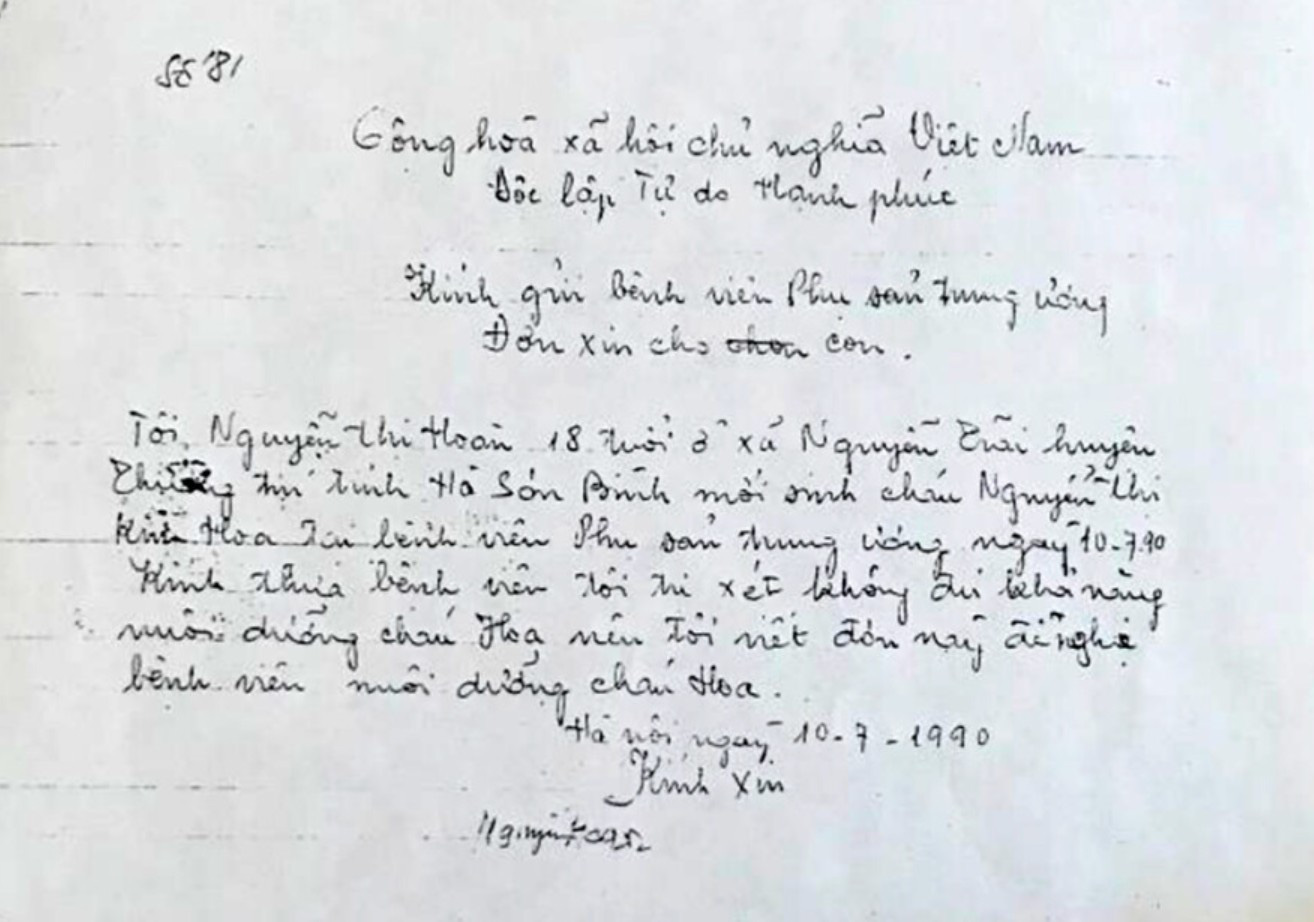 Số 81
Cộng hoà xã hôi chủ nghiã Việt Nam
Đôc lập Tự do Hạnh phúc
Kính gửi bênh viên Phụ sản trung ương
Đơn xin cho con.
Tôi, Nguyễn thị Hoàn 18 tuổi ở xã Nguyễn Trãi huyên
Thường tín tỉnh Hà Sơn Bình mới sinh cháu Nguyễn thị
Hoa tại bệnh viên Phụ sản trung ương ngaỳ 10-7.90
Kính thưa bệnh viên tôi tư xét không đủ khả năng
nuôi dưỡng cháu Hoa nên tôi viết đơn naỳ đề nghị
bệnh viên nuôi dưỡng cháu Hoa.
Hà nôi ngaỳ 10-7-1990
Kính xin